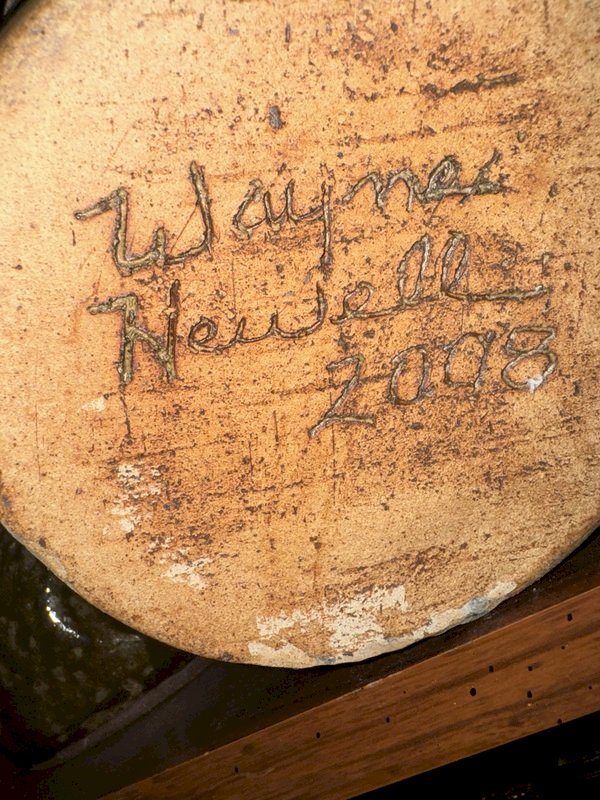 Wayne
Newell
2008